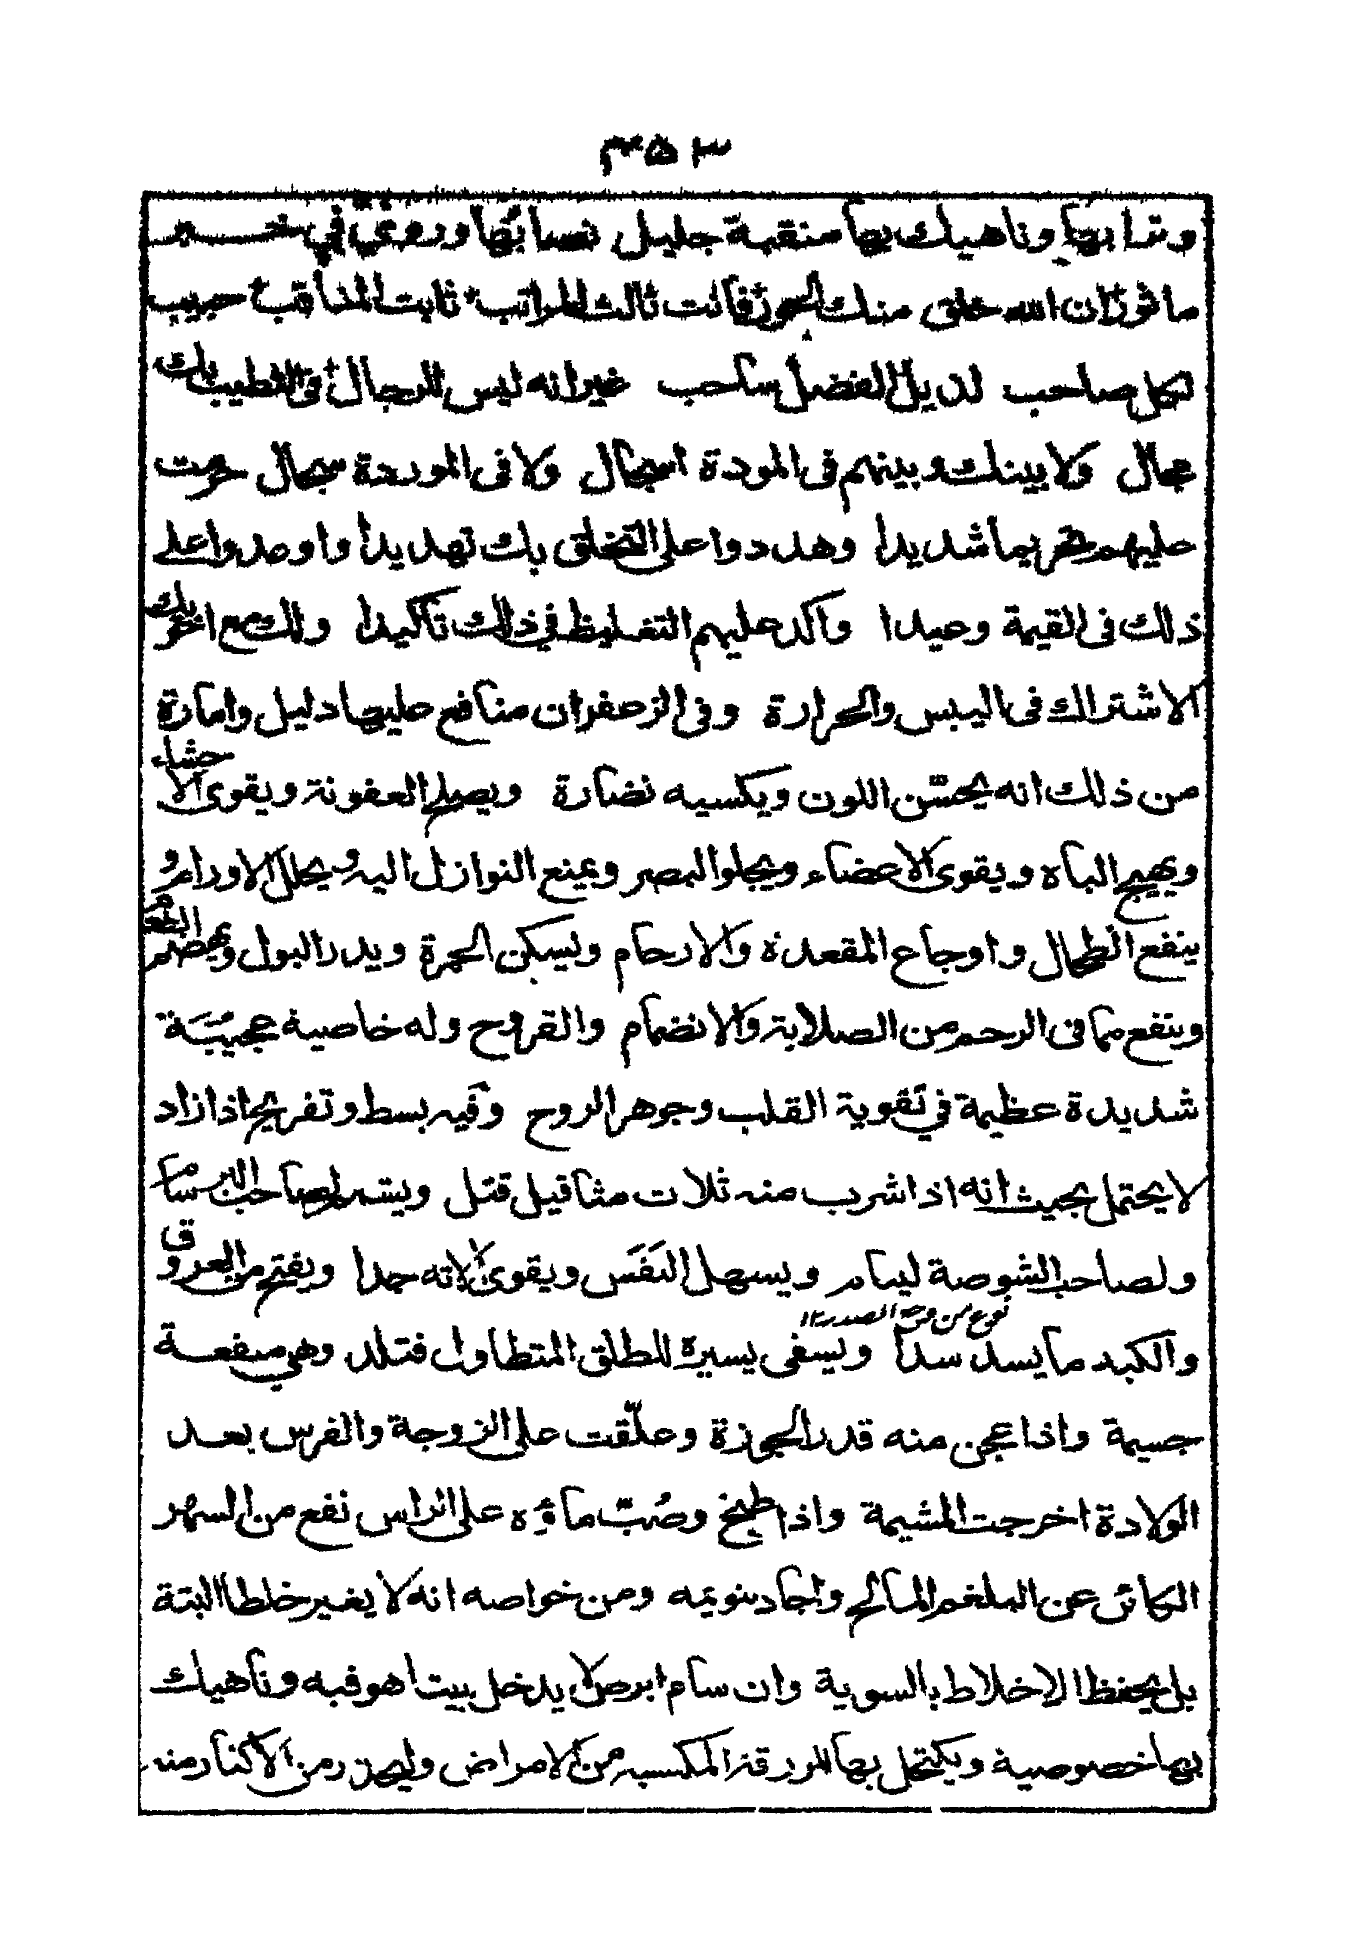 ٣٥٣
وتما بها وناهيك بها منقبة جليل نصابُها وروي في خبر
ماثور ان الله خلق منك الحور فانت ثالث المراتب ثابت المناقب حبيب
لكل صاحب لذيل الفضل ساحب غير انه ليس للرجال في التطيب بك
مجال ولا بينك وبينهم في المودة اسجال ولا في الموردة سجال حرمت
عليهم تحريما شديدا وهددوا على التخلق بك تهديدا واوعدوا على
ذلك في القيمة وعيدا واكد عليهم التغليظ في ذلك تاكيدا ولك مع اخر بك
الاشتراك في اليبس والحرارة وفي الزعفران منافع عليها دليل وامارة
من ذلك انه يحسّن اللون ويكسيه نضارة ويصلح العفونة ويقوى الاحشاء
ويهيج الباه ويقوى الاعضاء ويجلو البصر ويمنع النوازل اليه ويحلل الاورام و
ينفع الطحال واوجاع المقعدة والارحام ويسكن الحمرة ويدر البول ويهضم الطعام
وينفع مما في الرحم من الصلابة والانضمام والقروح وله خاصية عجيبة
شديدة عظيمة في تقوية القلب وجوهر الروح وفيه بسط وتفريح اذا زاد
لا يحتمل بحيث انه اذا شرب منه ثلاث مثاقيل قتل ويسر لصاحب البرسام
ولصاحب الشوصة لينام ويسهل النَفَس ويقوى الاته جدا ويفتح من العروق
نوع من وجع الصدر ١٢
والكبد ما يسد سدا ويسقى يسيره للطلق المتطاول فتلد وهي منفعة
جسيمة واذا عجن منه قدر الجوزة وعلّقت على الزوجة والفرس بعد
الولادة اخرجت المشيمة واذا طبخ وصُبّ ماؤه على الراس نفع من السهر
الكائن عن البلغم المالح واجاد تنويمه ومن خواصه انه لا يغير خلطا البتة
بل يحفظ الاخلاط بالسوية وان سام ابرص لا يدخل بيتا هو فيه وناهيك
بها خصوصية ويكتحل بها للزرقة المكتسبه من الامراض وليحذر من الاكثار منه